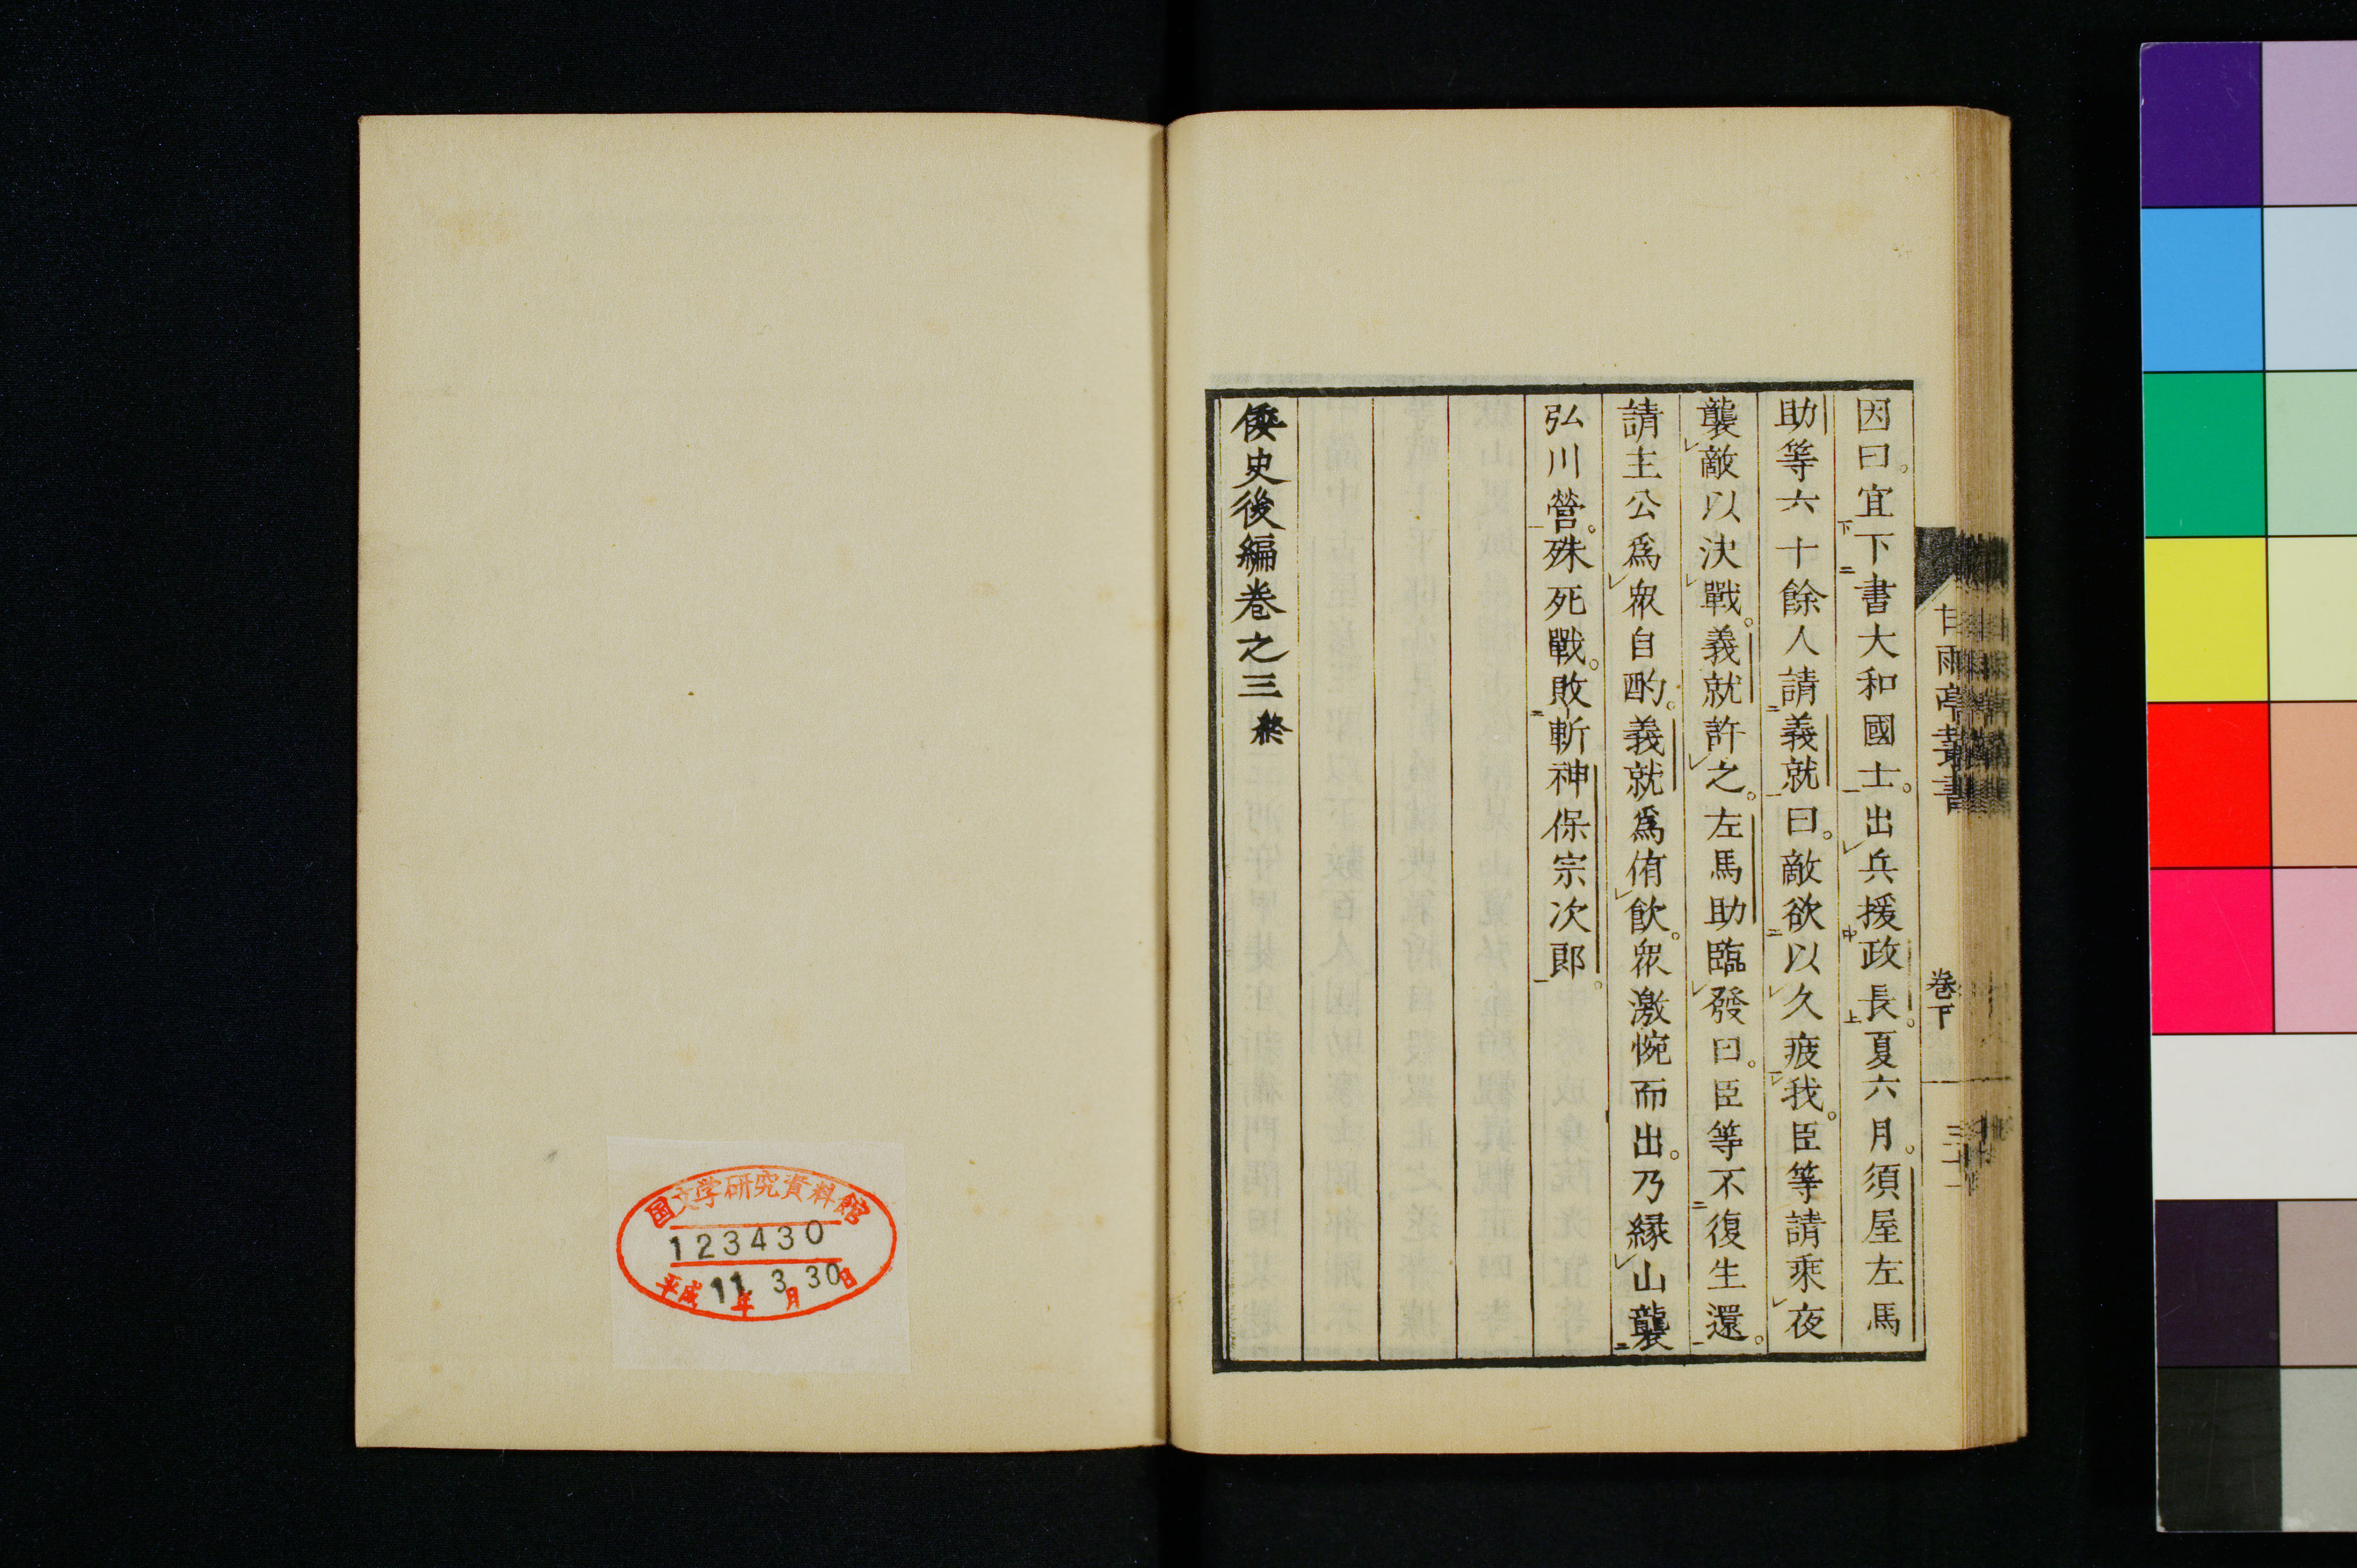 因曰。宜下書大和國士。出兵援政長。夏六月。須屋左馬
助等六十餘人請義就曰。敵欲以久疲我。臣等請乘夜
襲敵以決戰。義就許之。左馬助臨發曰。臣等不復生還。
請主公爲衆自酌。義就爲侑飮。衆激惋而出。乃縁山襲
弘川營。殊死戰。敗斬神保宗次郎。
倭史後編卷之三 終
甘雨亭叢書
卷下
国文学研究資料館
123430
平成11年3月30日